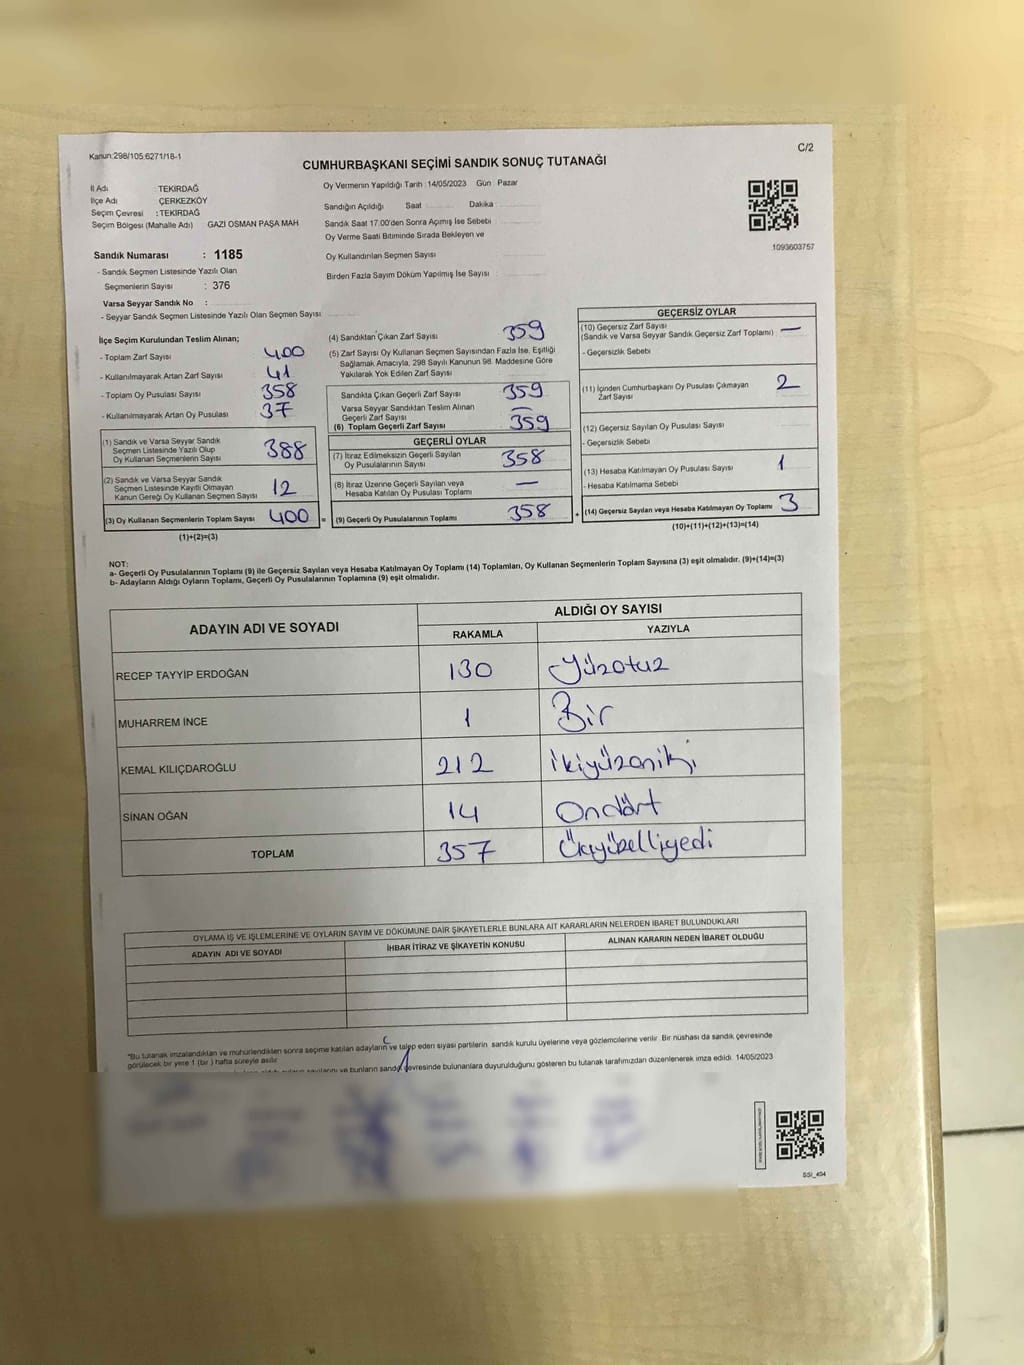 Kanun:298/105;6271/18-1
C/2
CUMHURBAŞKANI SEÇİMİ SANDIK SONUÇ TUTANAĞI
İl Adı : TEKİRDAĞ
İlçe Adı : ÇERKEZKÖY
Seçim Çevresi : TEKİRDAĞ
Seçim Bölgesi (Mahalle Adı) GAZİ OSMAN PAŞA MAH
Sandık Numarası : 1185
- Sandık Seçmen Listesinde Yazılı Olan
Seçmenlerin Sayısı : 376
Varsa Seyyar Sandık No :
- Seyyar Sandık Seçmen Listesinde Yazılı Olan Seçmen Sayısı
Oy Vermenin Yapıldığı Tarih :14/05/2023 Gün Pazar
Sandığın Açıldığı Saat Dakika
Sandık Saat 17:00'den Sonra Açımış İse Sebebi
Oy Verme Saati Bitiminde Sırada Bekleyen ve
Oy Kullandırılan Seçmen Sayısı
Birden Fazla Sayım Döküm Yapılmış İse Sayısı
1093603757
İlçe Seçim Kurulundan Teslim Alınan;
- Toplam Zarf Sayısı 400
- Kullanılmayarak Artan Zarf Sayısı 41
- Toplam Oy Pusulası Sayısı 358
- Kullanılmayarak Artan Oy Pusulası 37
(1) Sandık ve Varsa Seyyar Sandık
Seçmen Listesinde Yazılı Olup
Oy Kullanan Seçmenlerin Sayısı 388
(2) Sandık ve Varsa Seyyar Sandık
Seçmen Listesinde Kayıtlı Olmayan
Kanun Gereği Oy Kullanan Seçmen Sayısı 12
(3) Oy Kullanan Seçmenlerin Toplam Sayısı 400 =
(1)+(2)=(3)
(4) Sandıktan Çıkan Zarf Sayısı 359
(5) Zarf Sayısı Oy Kullanan Seçmen Sayısından Fazla İse, Eşitliği
Sağlamak Amacıyla, 298 Sayılı Kanunun 98. Maddesine Göre
Yakılarak Yok Edilen Zarf Sayısı
Sandıkta Çıkan Geçerli Zarf Sayısı 359
Varsa Seyyar Sandıktan Teslim Alınan
Geçerli Zarf Sayısı —
(6) Toplam Geçerli Zarf Sayısı 359
GEÇERLİ OYLAR
(7) İtiraz Edilmeksizin Geçerli Sayılan
Oy Pusulalarının Sayısı 358
(8) İtiraz Üzerine Geçerli Sayılan veya
Hesaba Katılan Oy Pusulası Toplamı —
(9) Geçerli Oy Pusulalarının Toplamı 358 +
GEÇERSİZ OYLAR
(10) Geçersiz Zarf Sayısı
(Sandık ve Varsa Seyyar Sandık Geçersiz Zarf Toplamı) —
- Geçersizlik Sebebi
(11) İçinden Cumhurbaşkanı Oy Pusulası Çıkmayan
Zarf Sayısı 2
(12) Geçersiz Sayılan Oy Pusulası Sayısı
- Geçersizlik Sebebi
(13) Hesaba Katılmayan Oy Pusulası Sayısı 1
- Hesaba Katılmama Sebebi
(14) Geçersiz Sayılan veya Hesaba Katılmayan Oy Toplamı 3
(10)+(11)+(12)+(13)=(14)
NOT:
a- Geçerli Oy Pusulalarının Toplamı (9) ile Geçersiz Sayılan veya Hesaba Katılmayan Oy Toplamı (14) Toplamları, Oy Kullanan Seçmenlerin Toplam Sayısına (3) eşit olmalıdır. (9)+(14)=(3)
b- Adayların Aldığı Oyların Toplamı, Geçerli Oy Pusulalarının Toplamına (9) eşit olmalıdır.
ADAYIN ADI VE SOYADI
ALDIĞI OY SAYISI
RAKAMLA YAZIYLA
RECEP TAYYİP ERDOĞAN 130 Yüzotuz
MUHARREM İNCE 1 Bir
KEMAL KILIÇDAROĞLU 212 ikiyüzoniki
SİNAN OĞAN 14 Ondört
TOPLAM 357 Üçyüzelliyedi
OYLAMA İŞ VE İŞLEMLERİNE VE OYLARIN SAYIM VE DÖKÜMÜNE DAİR ŞİKAYETLERLE BUNLARA AİT KARARLARIN NELERDEN İBARET BULUNDUKLARI
ADAYIN ADI VE SOYADI İHBAR İTİRAZ VE ŞİKAYETİN KONUSU ALINAN KARARIN NEDEN İBARET OLDUĞU
"Bu tutanak imzalandıktan ve mühürlendikten sonra seçime katılan adayların ve talep eden siyasi partilerin sandık kurulu üyelerine veya gözlemcilerine verilir. Bir nüshası da sandık çevresinde
görülecek bir yere 1 (bir ) hafta süreyle asılır.
ve bunların sandık çevresinde bulunanlara duyurulduğunu gösteren bu tutanak tarafımızdan düzenlenerek imza edildi. 14/05/2023
SSİ_494